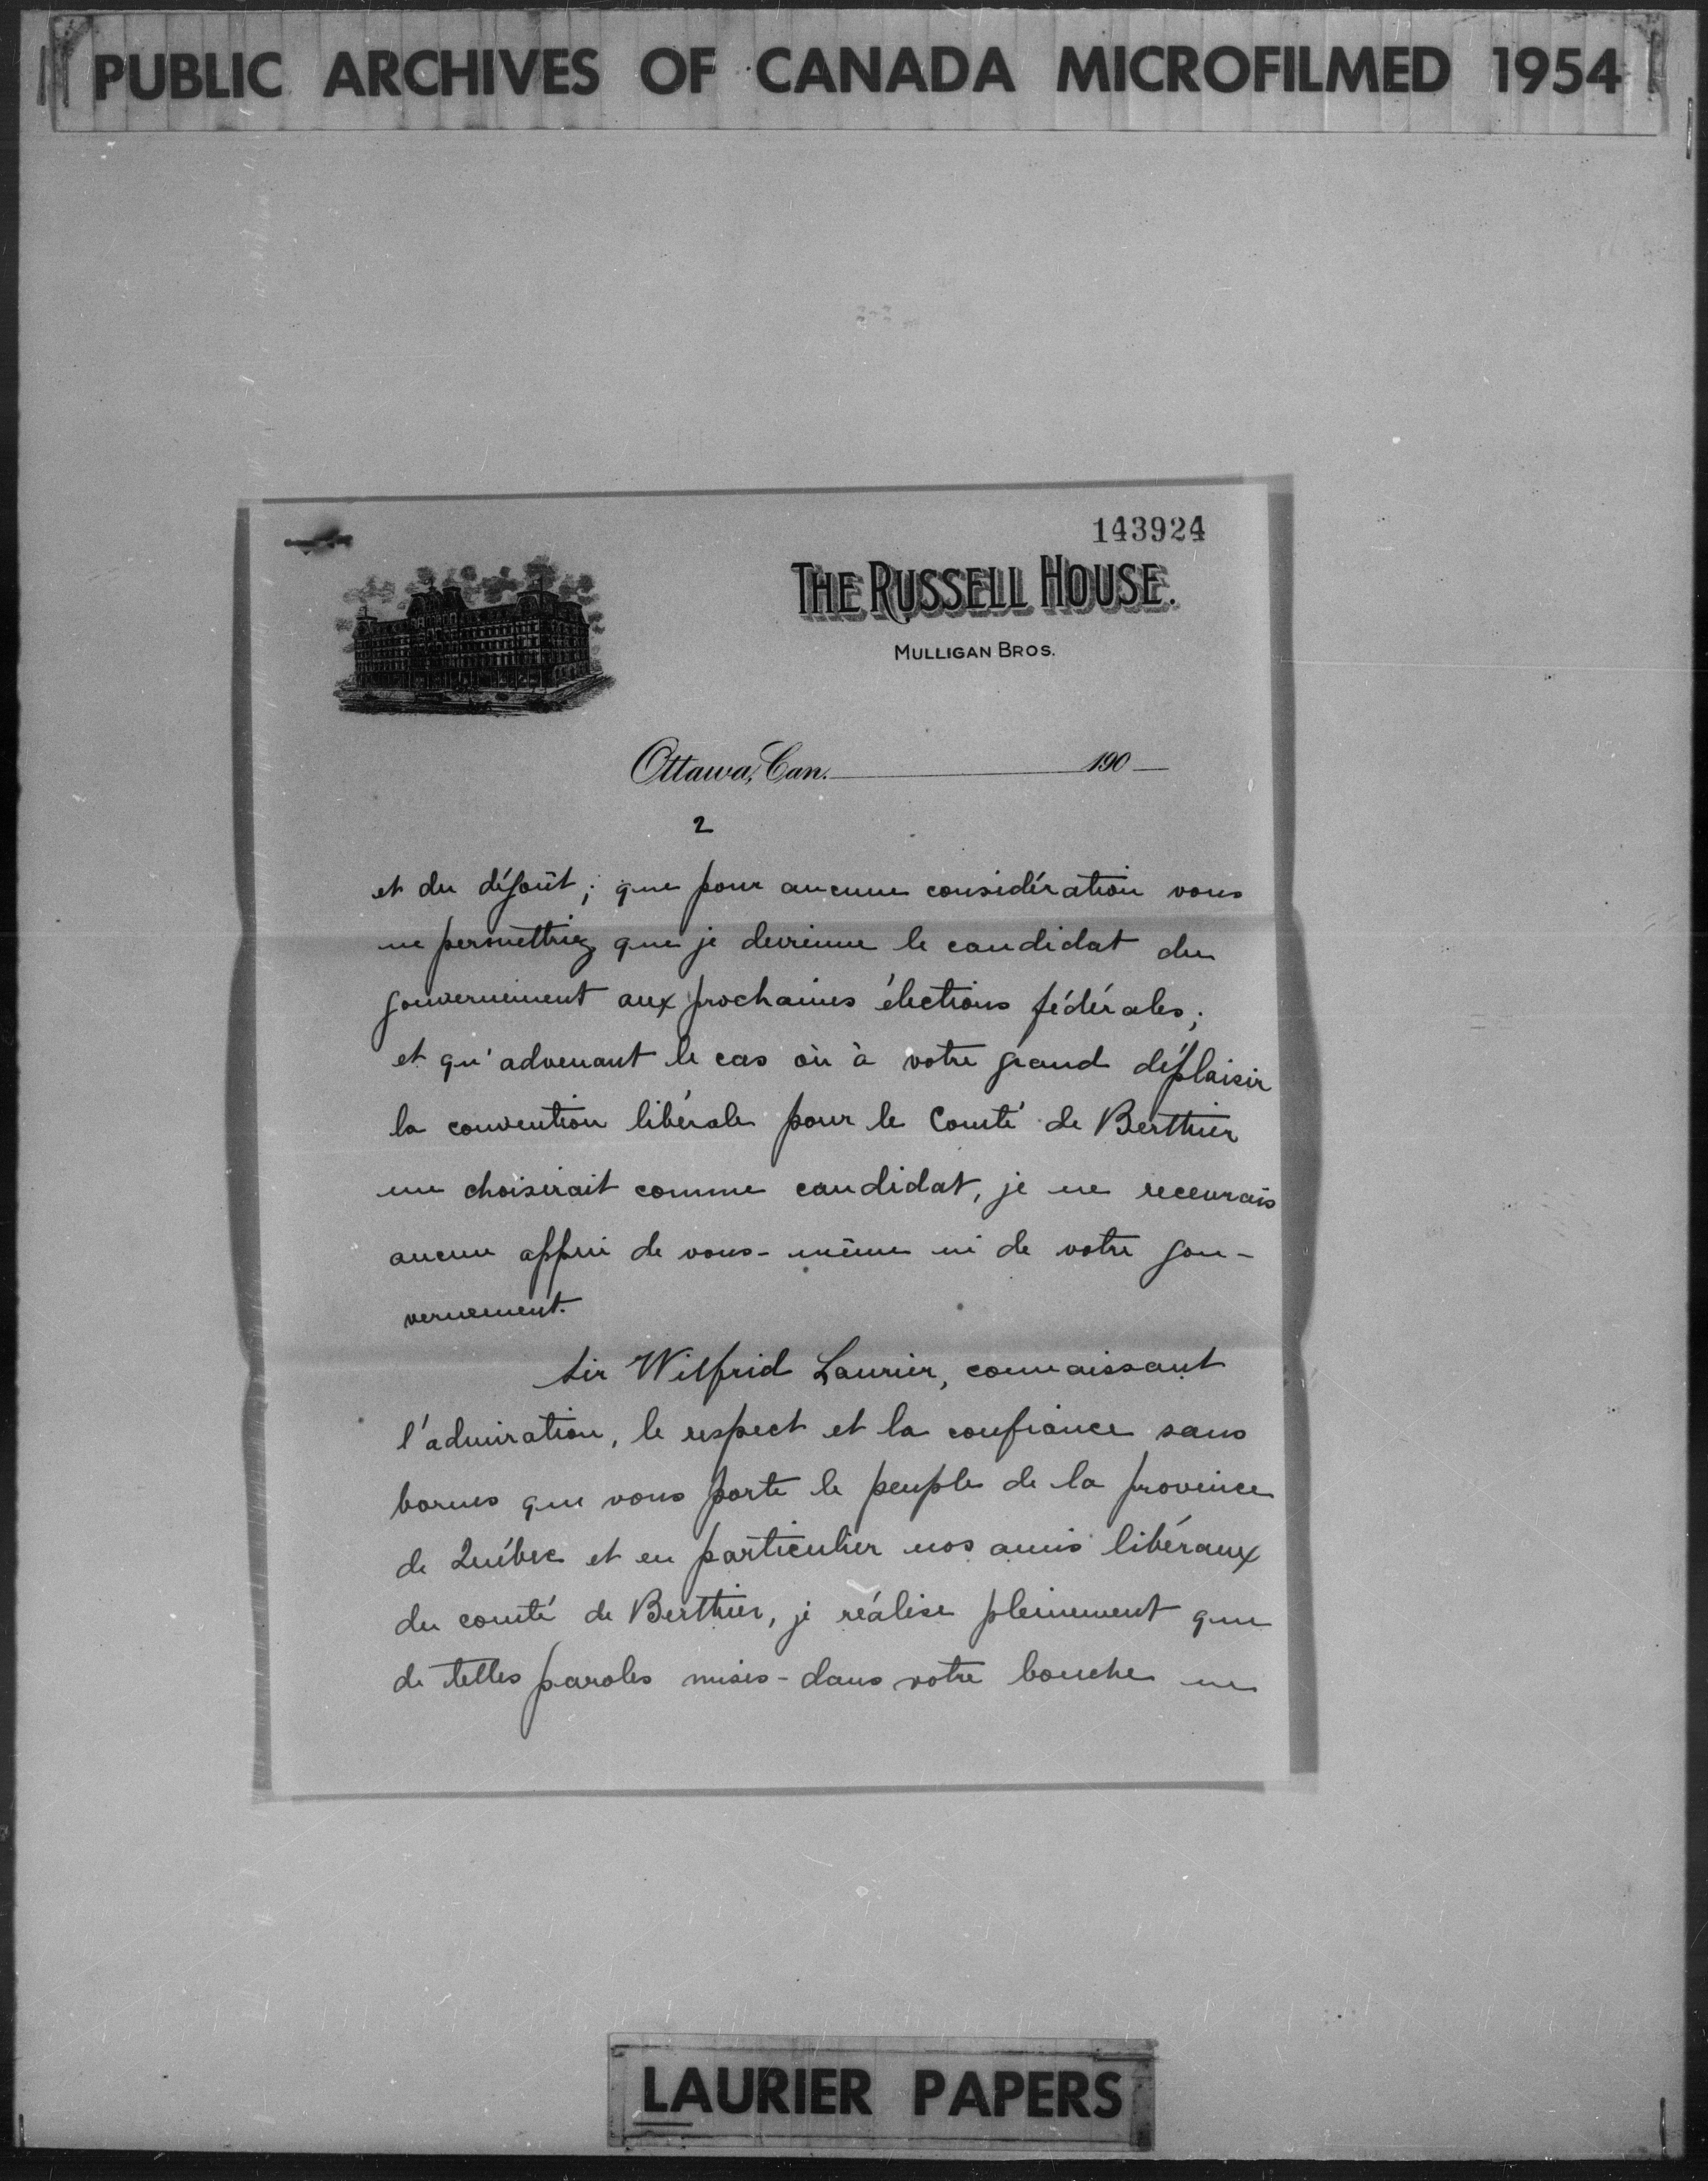 PUBLIC ARCHIVES OF CANADA MICROFILMED 1954
143924
THE RUSSELL HOUSE.
MULLIGAN BROS.
Ottawa, Can. 190
2
et du dégoût; que pour aucune considération vous
ne permettriez que je devienne le candidat du
gouvernement aux prochaines élections fédérales;
et qu'advenant le cas où à votre grand déplaisir
la convention libérale pour le Comté de Berthier
me choisirait comme candidat, je ne recevrais
aucun appui de vous-même ni de votre gou-
vernement.
Sir Wilfrid Laurier, connaissant
l'admiration, le respect et la confiance sans
bornes que vous porte le peuple de la province
de Québec et en particulier nos amis libéraux
du comté de Berthier, je réalise pleinement que
de telles paroles mises-dans votre bouche ne
LAURIER PAPERS